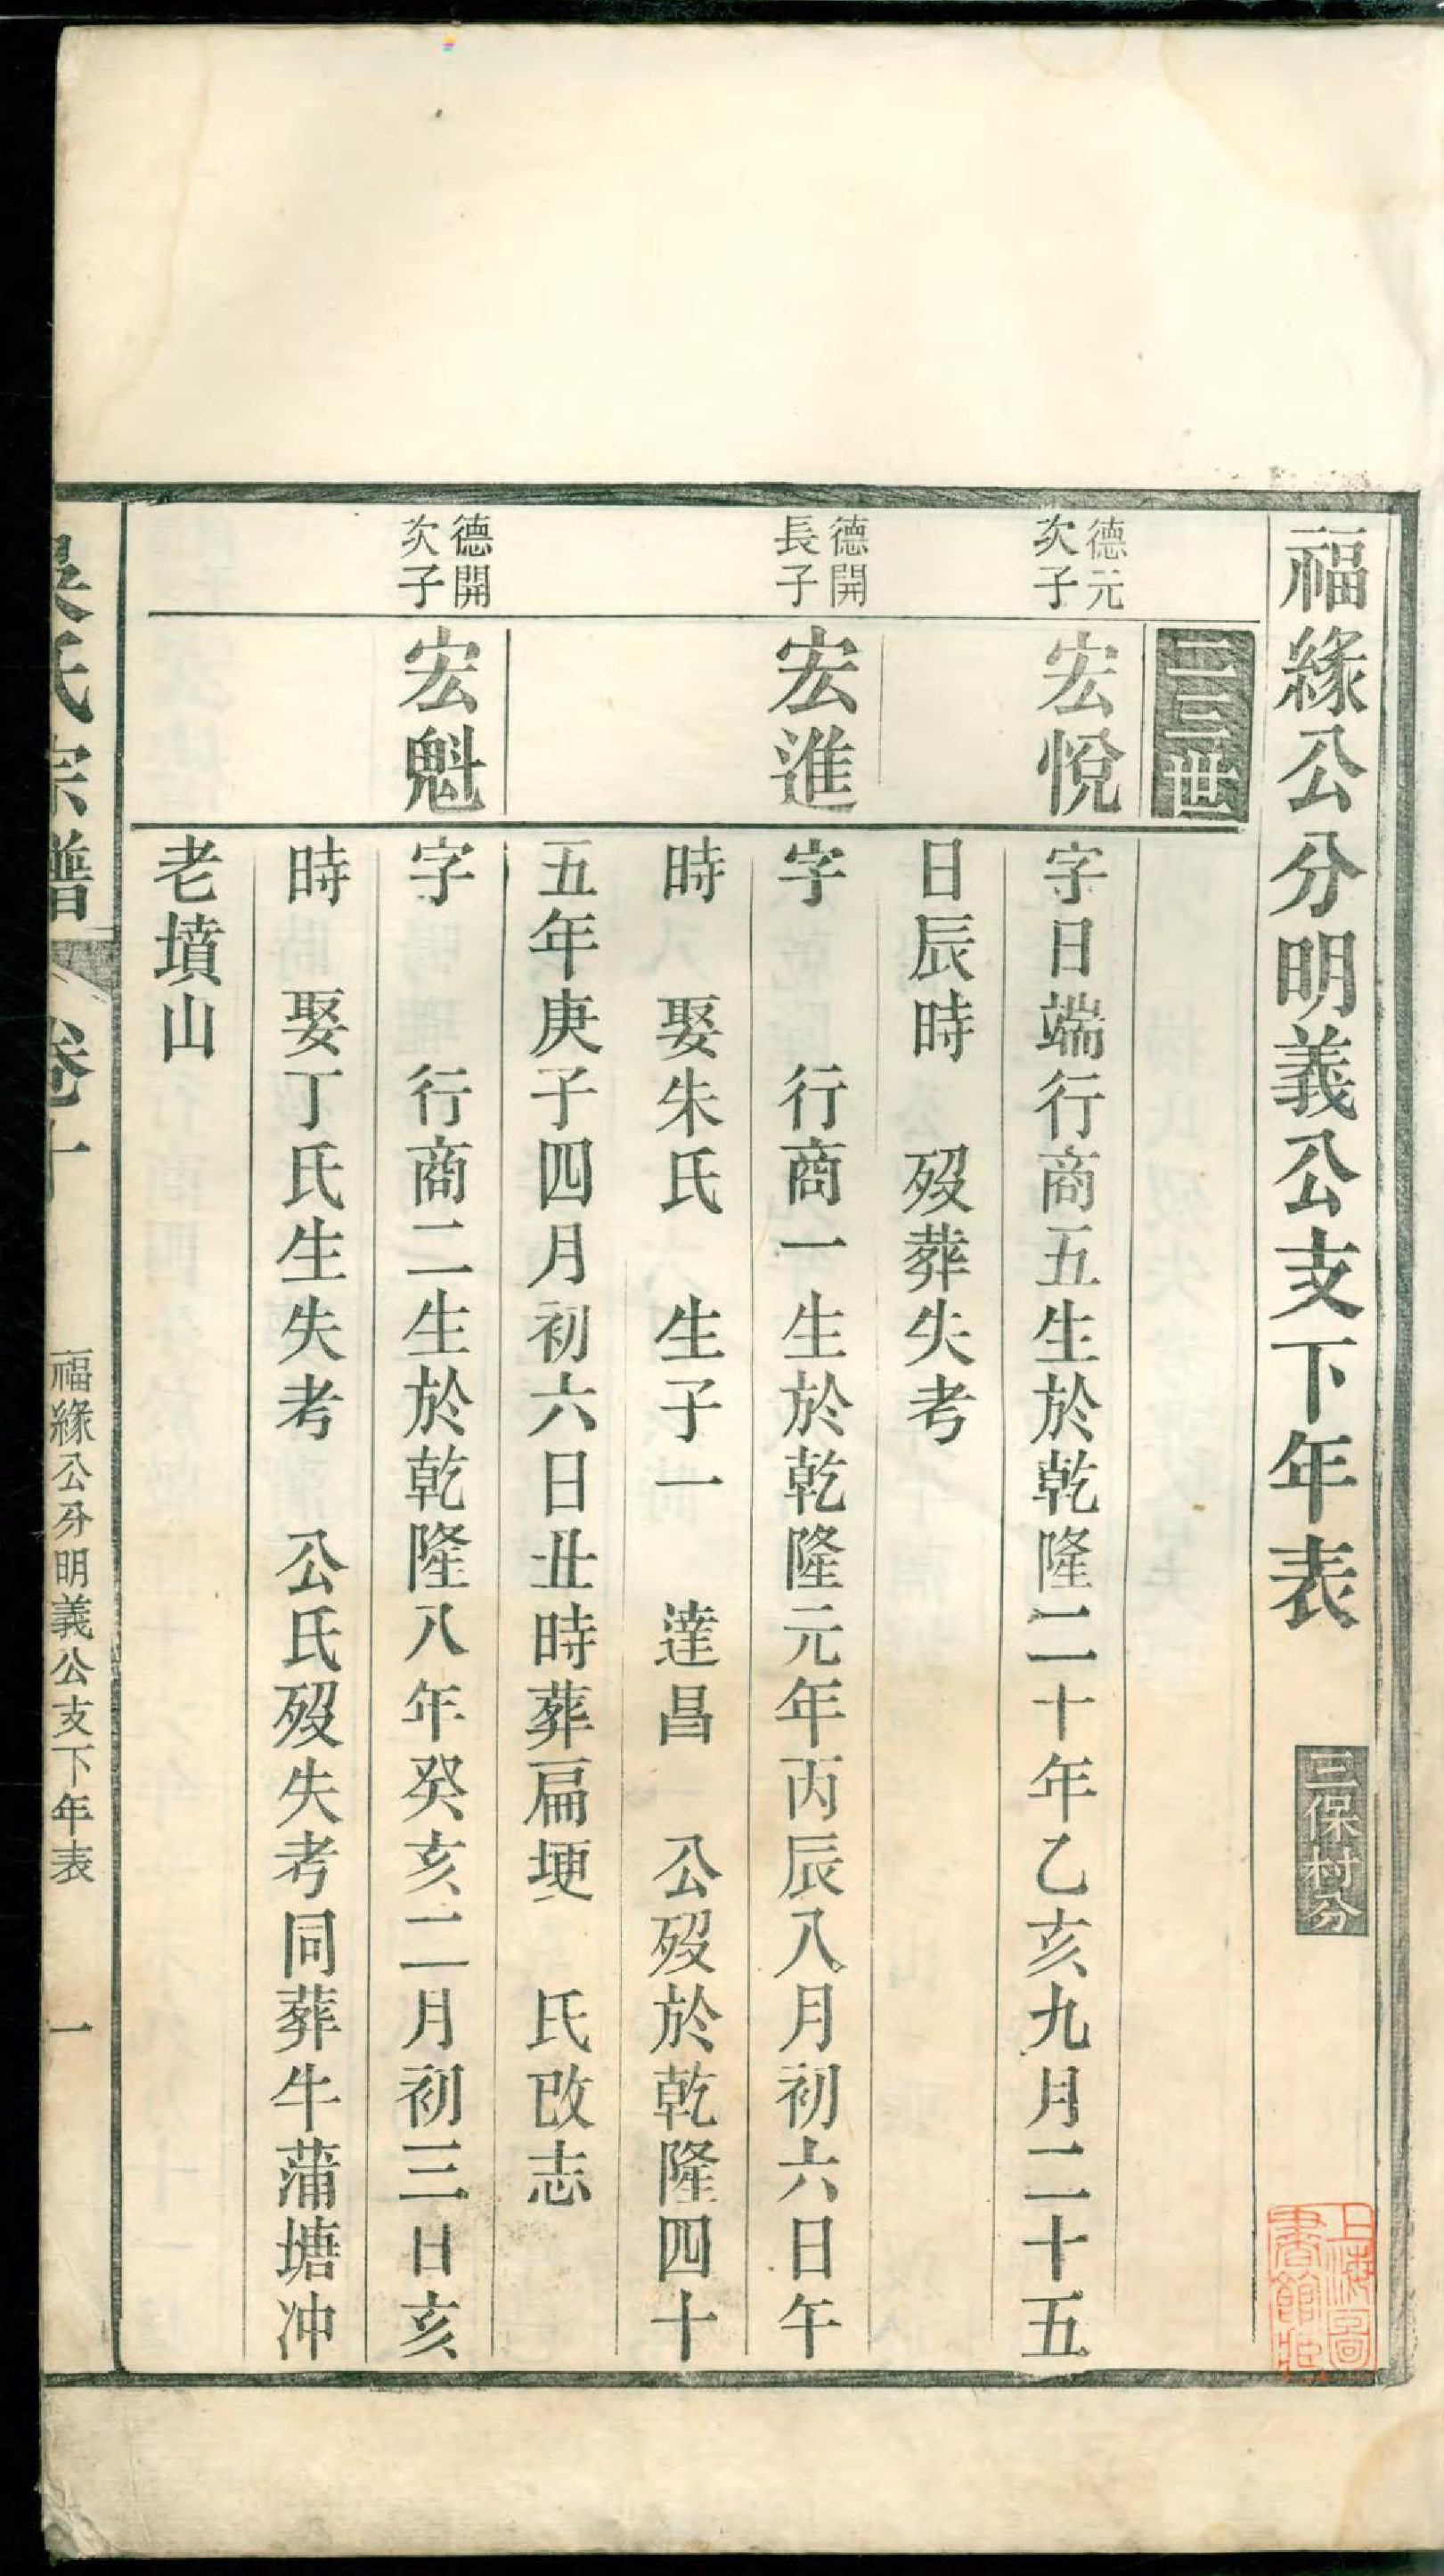 福緣公分明義公支下年表
三保村分
上海圖書館藏
二三世
德元次子
宏悅
字日端行商五生於乾隆二十年乙亥九月二十五
日辰時 歿葬失考
德開長子
宏進
字 行商一生於乾隆元年丙辰八月初六日午
時 娶朱氏 生子一 達昌 公歿於乾隆四十
五年庚子四月初六日丑時葬扁埂 氏改志
德開次子
宏魁
字 行商二生於乾隆八年癸亥二月初三日亥
時 娶丁氏生失考 公氏歿失考同葬牛蒲塘冲
老墳山
吳氏宗譜
卷十
福緣公分明義公支下年表
一